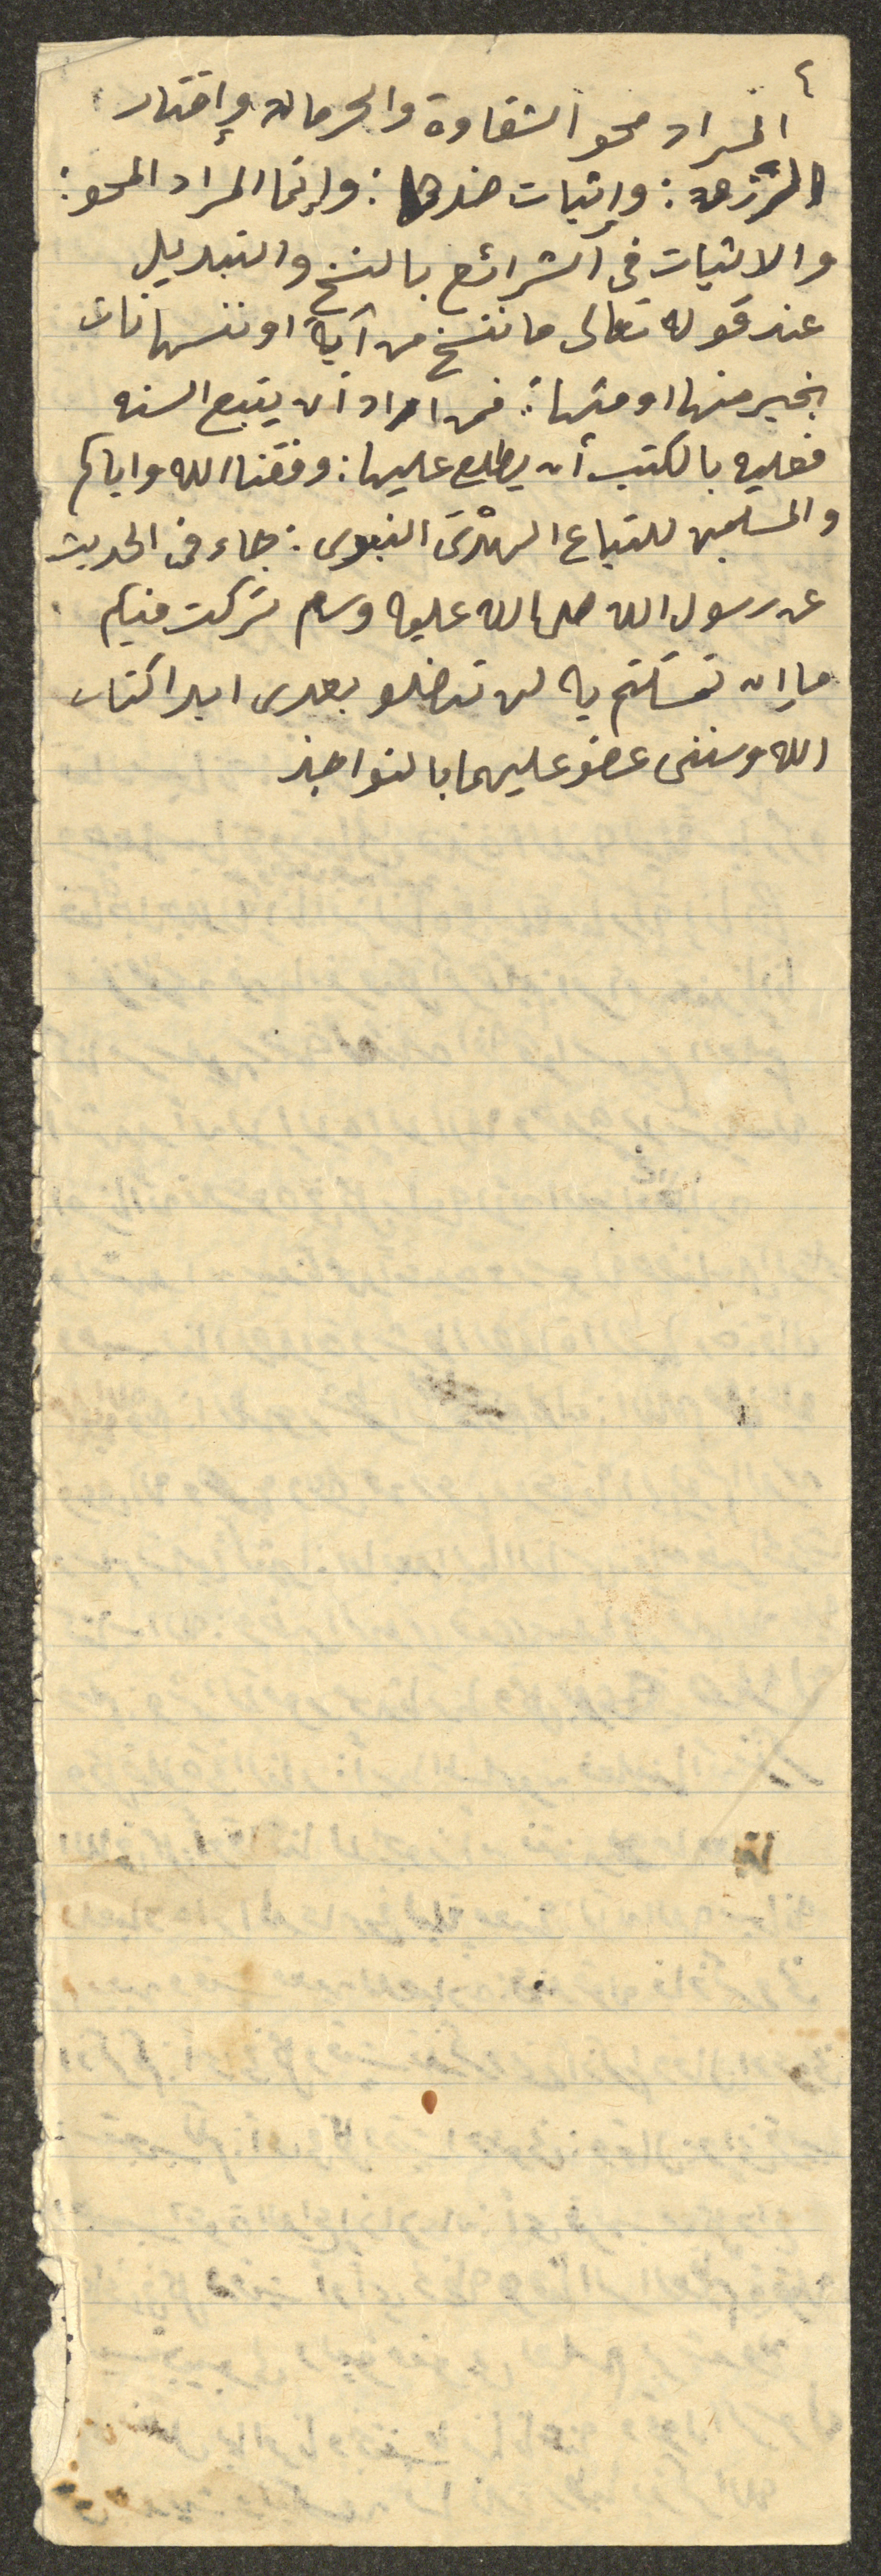 ٤
المراد محو الشقاوة والحرمان وإقتار
الرزق: وإثبات ضدها: وإنما المراد المحو:
والاثبات فى الشرائع بالنسخ والتبديل
عند قوله تعالى ما ننسخ من آية او ننسها نات
بخير منها او مثلها: فمن اراد أن يتبع السنه
فعليه بالكتب أن يطلع عليها: وفقنا الله واياكم
والمسلمين للتباع الهدى النبوى: جاء فى الحديث
عن رسول الله صلى الله عليه وسلم تركت فيكم
ما إن تمسكتم به لن تضلو بعدى ابدا كتاب
الله وسنتى عضو عليهما بالنواجذ